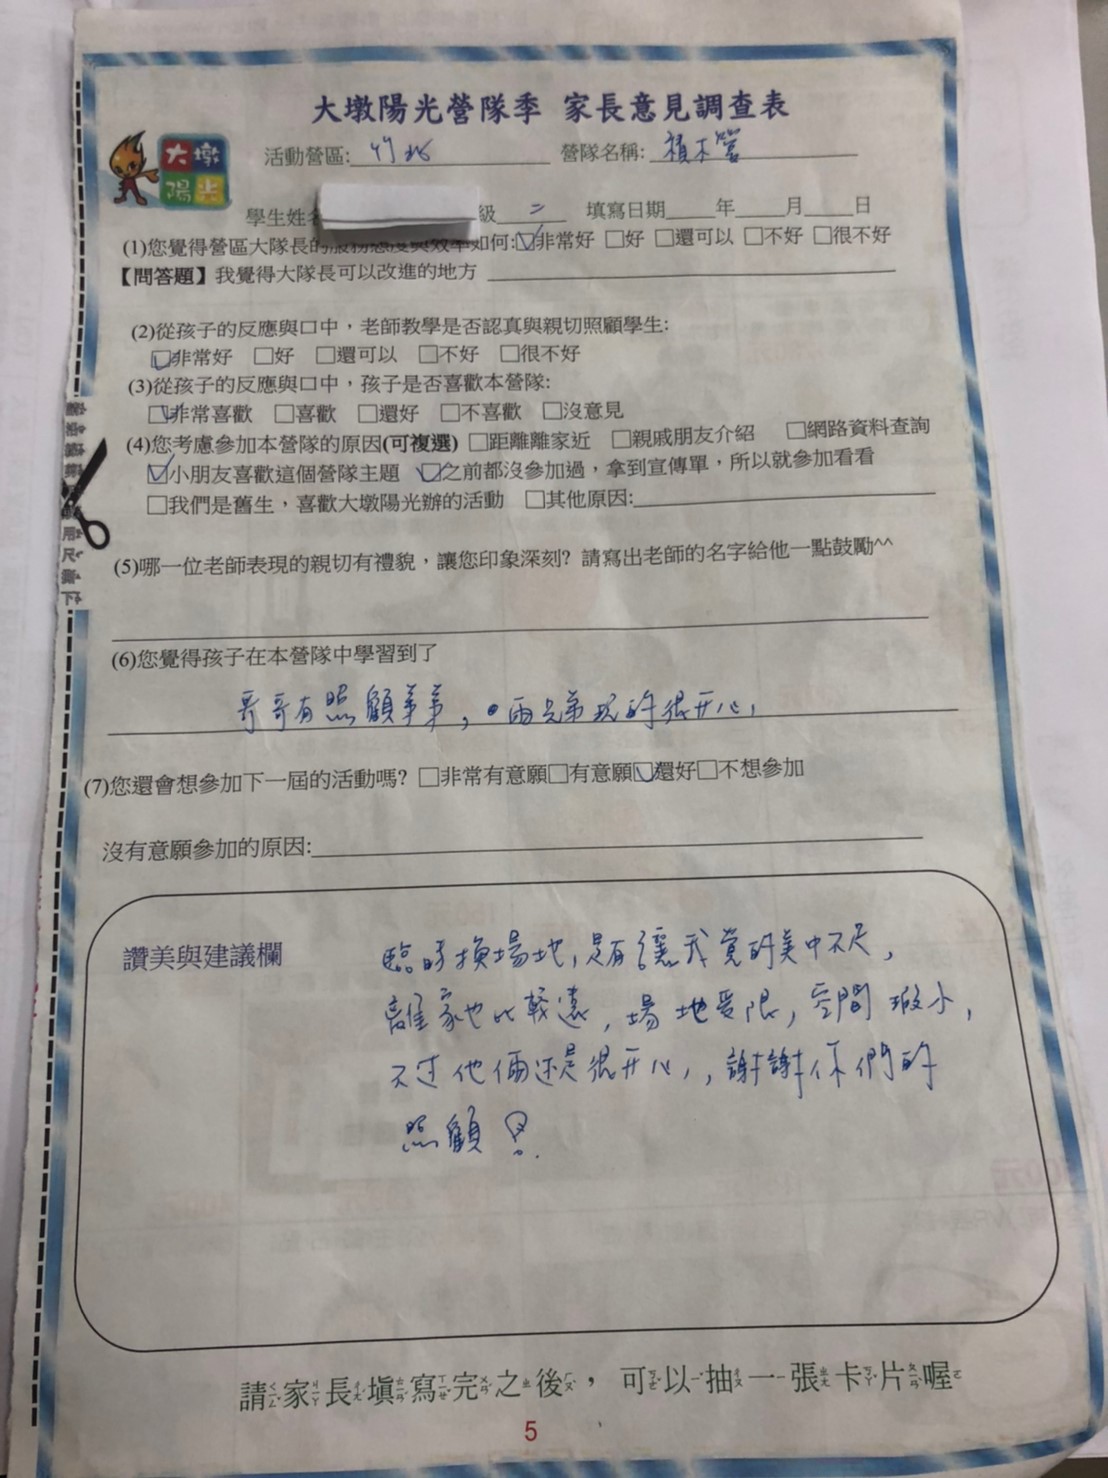 大墩陽光營隊季 家長意見調查表
大墩
陽光
活動營區: 竹北 營隊名稱: 積木營
學生姓名 級 二 填寫日期 年 月 日
(1)您覺得營區大隊長的服務態度與效率如何:☑非常好 □好 □還可以 □不好 □很不好
【問答題】我覺得大隊長可以改進的地方
(2)從孩子的反應與口中,老師教學是否認真與親切照顧學生:
☑非常好 □好 □還可以 □不好 □很不好
(3)從孩子的反應與口中,孩子是否喜歡本營隊:
☑非常喜歡 □喜歡 □還好 □不喜歡 □沒意見
(4)您考慮參加本營隊的原因(可複選) □距離離家近 □親戚朋友介紹 □網路資料查詢
☑小朋友喜歡這個營隊主題 ☑之前都沒參加過,拿到宣傳單,所以就參加看看
□我們是舊生,喜歡大墩陽光辦的活動 □其他原因:
(5)哪一位老師表現的親切有禮貌,讓您印象深刻? 請寫出老師的名字給他一點鼓勵^^
(6)您覺得孩子在本營隊中學習到了
哥哥有照顧弟弟,兩兄弟玩的很开心,
(7)您還會想參加下一屆的活動嗎? □非常有意願□有意願☑還好□不想參加
沒有意願參加的原因:
讚美與建議欄
臨時換場地,是有讓我覺的美中不足,
離家也比較遠,場地受限,空間瑕小,
不过他倆还是很开心,,謝謝你們的
照顧!
請家長填寫完之後,可以抽一張卡片喔
5